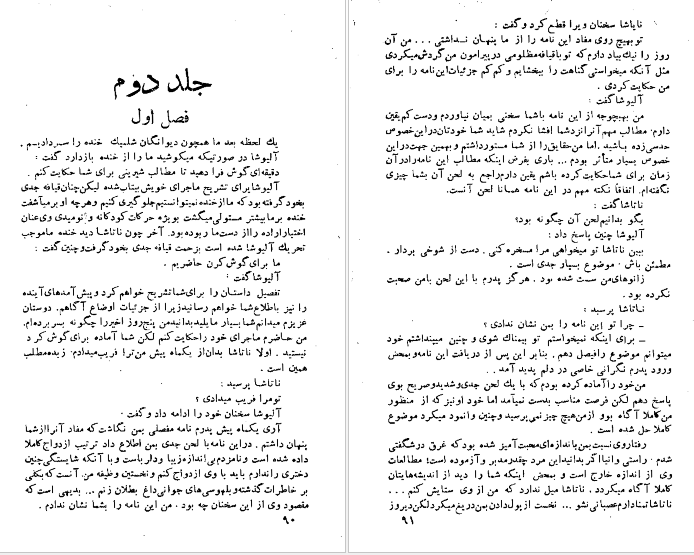 جلد دوم
فصل اول
یك لحظه بعد ما همچون دیوانگان شلیك خنده را سردادیم.
آلیوشا در صورتیکه میکوشید ما را از خنده بازدارد گفت:
دقیقه‌ای گوش فرا دهید تا مطالب شیرینی برای شما حکایت کنم.
آلیوشا برای تشریح ماجرای خویش بیتاب شده لیکن چنان قیافه جدی
بخود گرفته بود که ما از خنده نمیتوانستیم جلوگیری کنیم و هرچه او برمیآشفت
خنده ما بیشتر مستولی میگشت بویژه حرکات کودکانه و نومیدی وی عنان
اختیار اراده را از دست ما ربوده بود. آخر چون ناتاشا دید خنده ما موجب
تحریك آلیوشا شده است بزحمت قیافه جدی بخود گرفت و چنین گفت:
ما برای گوش کردن حاضریم.
آلیوشا گفت:
تفصیل داستان را برای شما تشریح خواهم کرد و پیش آمدهای آینده
را نیز باطلاع شما خواهم رسانید زیرا از جزئیات اوضاع آگاهم. دوستان
عزیزم میدانم شما بسیار مایلید بدانید من پنج روز اخیر را چگونه بسر برده‌ام.
من حاضرم ماجرای خود را حکایت کنم لکن شما آماده برای گوش کردن
نیستید. اولا ناتاشا بدان از یکماه پیش من ترا فریب میدادم. زبده مطلب
همین است.
ناتاشا پرسید:
تو مرا فریب میدادی؟
آلیوشا سخنان خود را ادامه داد و گفت:
آری یکماه پیش پدرم نامه مفصلی بمن نگاشت که مفاد آنرا از شما
پنهان داشتم. در این نامه با لحن جدی بمن اطلاع داد ترتیب ازدواج کاملا
داده شده است و نامزدم بی اندازه زیبا و دلرباست و با آنکه شایستگی چنین
دختری را ندارم باید با وی ازدواج کنم و نخستین وظیفه من. آنست که بکلی
بر خاطرات گذشته و بلهوسی‌های جوانی داغ بطلان زنم ... بدیهی است که
مقصود وی از این سخنان چه بود. من این نامه را بشما نشان ندادم.
۹۰
ناتاشا سخنان ویرا قطع کرد و گفت:
تو بهیچ روی مفاد این نامه را از ما پنهان نداشتی ... من آن
روز را نیك بیاد دارم که تو با قیافه مظلومی در پیرامون من گردش میکردی
مثل آنکه میخواستی گناهت را ببخشایم و کم کم جزئیات این نامه را برای
من حکایت کردی.
آلیوشا گفت:
من بهیچوجه از این نامه با شما سخنی بمیان نیاوردم و دست کم یقین
دارم. مطالب مهم آنرا نزد شما افشا نکردم شاید شما خودتان در این خصوص
حدسی زده باشید. اما من حقایق را از شما مستور داشتم و بهمین جهت در این
خصوص بسیار متأثر بودم ... باری بفرض اینکه مطالب این نامه را در آن
زمان برای شما حکایت کرده باشم یقین دارم راجع به لحن آن بشما چیزی
نگفته‌ام. اتفاقاً نکته مهم در این نامه همانا لحن آنست.
ناتاشا گفت:
بگو بدانیم لحن آن چگونه بود؟
آلیوشا چنین پاسخ داد:
ببین ناتاشا تو میخواهی مرا مسخره کنی. دست از شوخی بردار.
مطمئن باش. موضوع بسیار جدی است.
زانوهای من سست شده بود. هرگز پدرم با این لحن با من صحبت
نکرده بود.
ناتاشا پرسید:
ـ چرا تو این نامه را بمن نشان ندادی؟
ـ برای اینکه نمیخواستم تو بیمناك شوی و چنین میپنداشتم خود
میتوانم موضوع را فیصل دهم. بنابر این پس از دریافت این نامه و بمحض
ورود پدرم نگرانی خاصی در دلم پدید آمد..
من خود را آماده کرده بودم که با یك لحن جدی و شدید و صریح بوی
پاسخ دهم لکن فرصت مناسب بدست نمیآمد اما خود او نیز که از منظور
من کاملا آگاه بود از من هیچ چیز نمی پرسید و چنین وانمود میکرد موضوع
کاملا حل شده است.
رفتار وی نسبت بمن باندازه‌ای محبت آمیز شده بود که غرق در شگفتی
شدم. راستی و انیا اگر بدانید این مرد چقدر مدبر و آزموده است؛ مطالعات
وی از اندازه خارج است و بمحض اینکه شما را دید از اندیشه‌هایتان
کاملا آگاه میگردد. ناتاشا میل ندارد که من از وی ستایش کنم ...
ناتاشا تمنا دارم عصبانی نشو ... نخست از پول دادن بمن دریغ میکرد لکن دیروز
۹۱